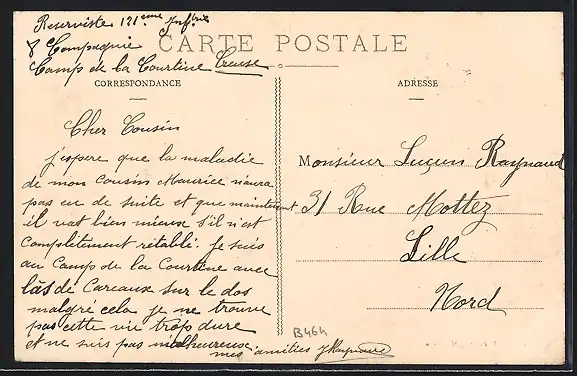 Reserviste 121ème Infrie
8 Compagnie
Camp de la Courtine Creuse
CARTE POSTALE
CORRESPONDANCE
Cher Cousin
j'espere que la maladie
de mon cousin Maurice n'aura
pas eu de suite et que maintenant
il vat bien mieux s'il n'est
complètement rétabli. Je suis
au Camp de la Courtine avec
l'as de Careaux sur le dos
malgré cela je ne trouve
pas cette vie trop dure
et ne suis pas malheureuse
mes amities J Raynaud
ADRESSE
Monsieur Luçien Raynaud
31 Rue Mottez
Lille
Nord
B464